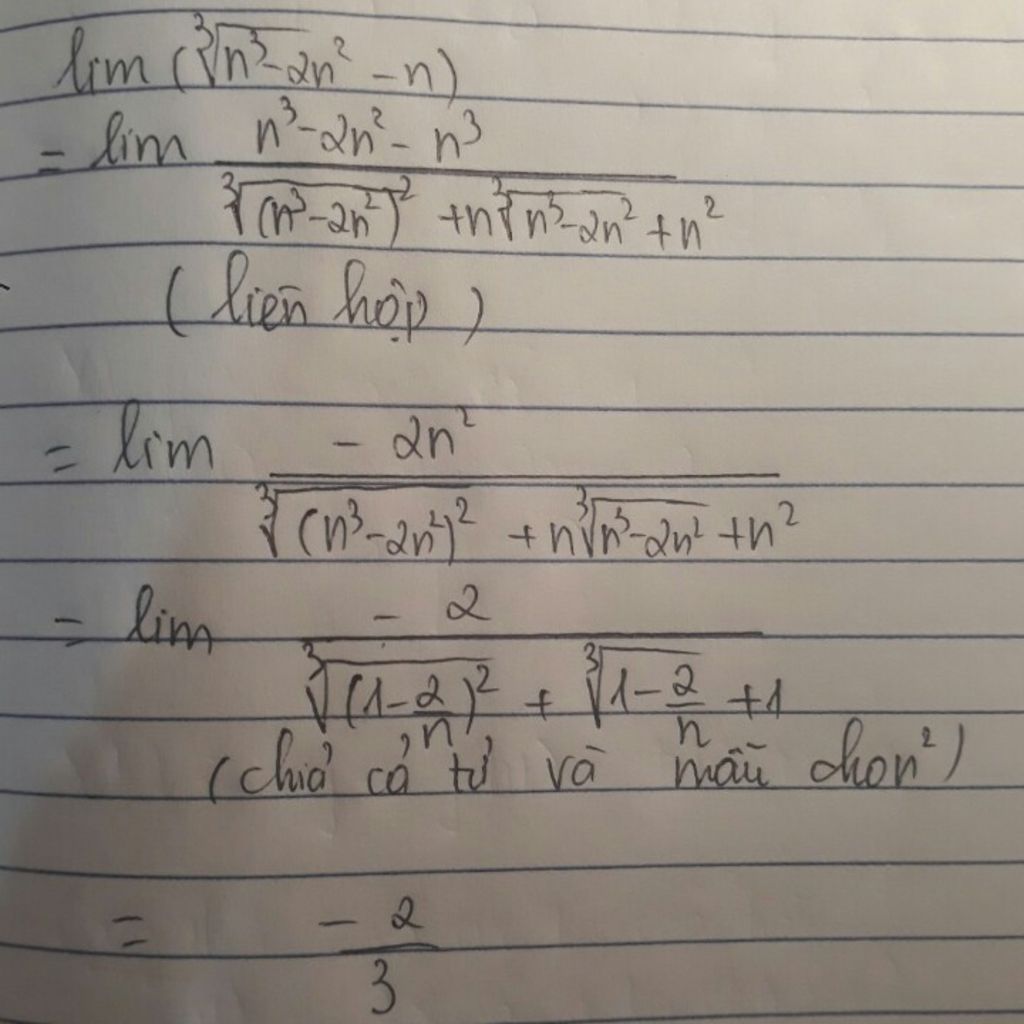 lim (∛(n³-2n²) - n)
= lim (n³-2n²- n³)/(∛((n³-2n²)²) + n∛(n³-2n²) + n²)
(liên hợp)
= lim (- 2n²)/(∛((n³-2n²)²) + n∛(n³-2n²) + n²)
= lim (- 2)/(∛((1-2/n)²) + ∛(1-2/n) + 1)
(chia cả tử và mẫu cho n²)
= (- 2)/3